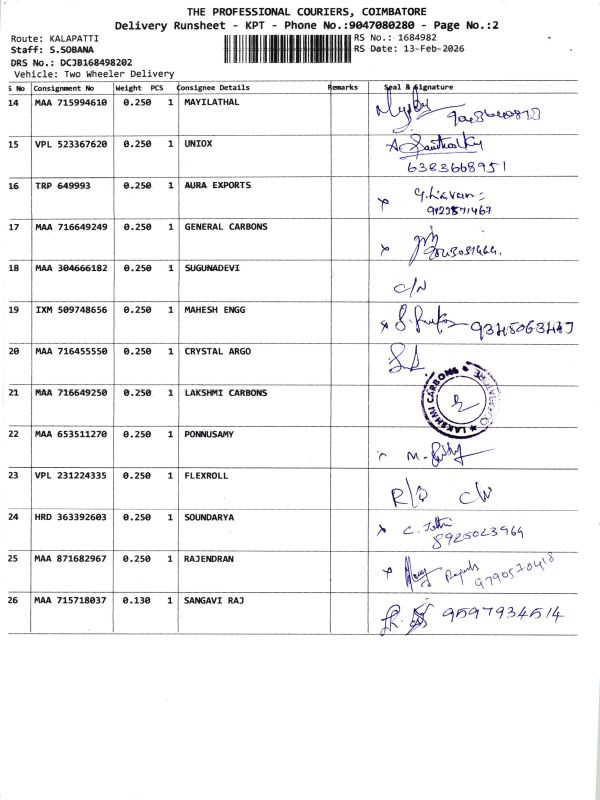 THE PROFESSIONAL COURIERS, COIMBATORE
Delivery Runsheet - KPT - Phone No.:9047080280 - Page No.:2
Route: KALAPATTI
RS No.: 1684982
Staff: S.SOBANA
RS Date: 13-Feb-2026
DRS No.: DCJB168498202
Vehicle: Two Wheeler Delivery
S No Consignment No Weight PCS Consignee Details Remarks Seal & Signature
14 MAA 715994610 0.250 1 MAYILATHAL
15 VPL 523367620 0.250 1 UNIOX
6383668951
16 TRP 649993 0.250 1 AURA EXPORTS
17 MAA 716649249 0.250 1 GENERAL CARBONS
18 MAA 304666182 0.250 1 SUGUNADEVI
C/N
19 IXM 509748656 0.250 1 MAHESH ENGG
20 MAA 716455550 0.250 1 CRYSTAL ARGO
21 MAA 716649250 0.250 1 LAKSHMI CARBONS
LAKSHMI CARBONS
22 MAA 653511270 0.250 1 PONNUSAMY
23 VPL 231224335 0.250 1 FLEXROLL
24 HRD 363392603 0.250 1 SOUNDARYA
8925023964
25 MAA 871682967 0.250 1 RAJENDRAN
26 MAA 715718037 0.130 1 SANGAVI RAJ
9597934514